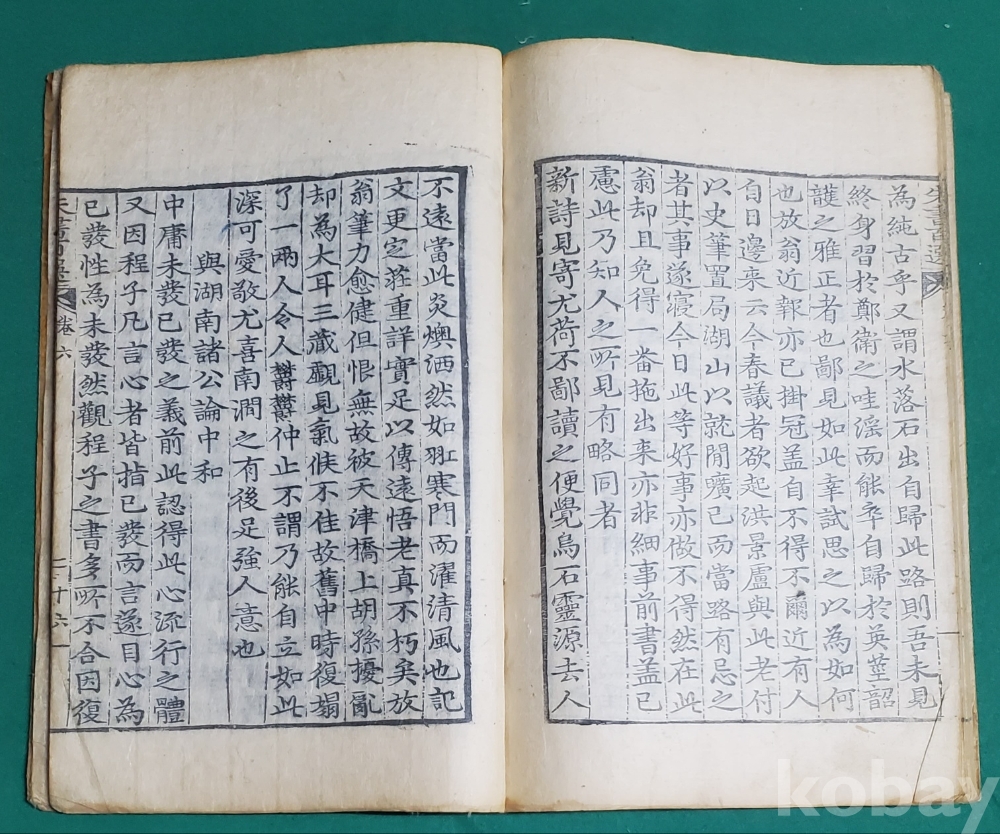 朱書百選
為純古乎又謂水落石出自歸此路則吾未見
終身習於鄭衛之哇滛而能卒自歸於英莖韶
頀之雅正者也鄙見如此幸試思之以為如何
也放翁近報亦已掛冠盖自不得不爾近有人
自日邊来云今春議者欲起洪景盧與此老付
以史筆置局湖山以就閒曠已而當路有忌之
者其事遂寢今日此等好事亦做不得然在此
翁却且免得一畨拖出来亦非細事前書盖已
慮此乃知人之所見有略同者
新詩見寄尤荷不鄙讀之便覺烏石靈源去人
不遠當此炎燠洒然如寒門而濯清風也記
文更定莊重詳實足以傳遠悟老真不朽矣放
翁筆力愈健但恨無故被天津橋上胡孫擾亂
却為大耳三藏覷見氣候不佳故舊中時復塌
了一兩人令人欝欝仲止不謂乃能自立如此
深可愛敬尤喜南澗之有後足強人意也
與湖南諸公論中和
中庸未發已發之義前此認得此心流行之體
又因程子凡言心者皆指已發而言遂目心為
已發性為未發然觀程子之書多所不合因復
朱書百選 卷六 十六
kobay